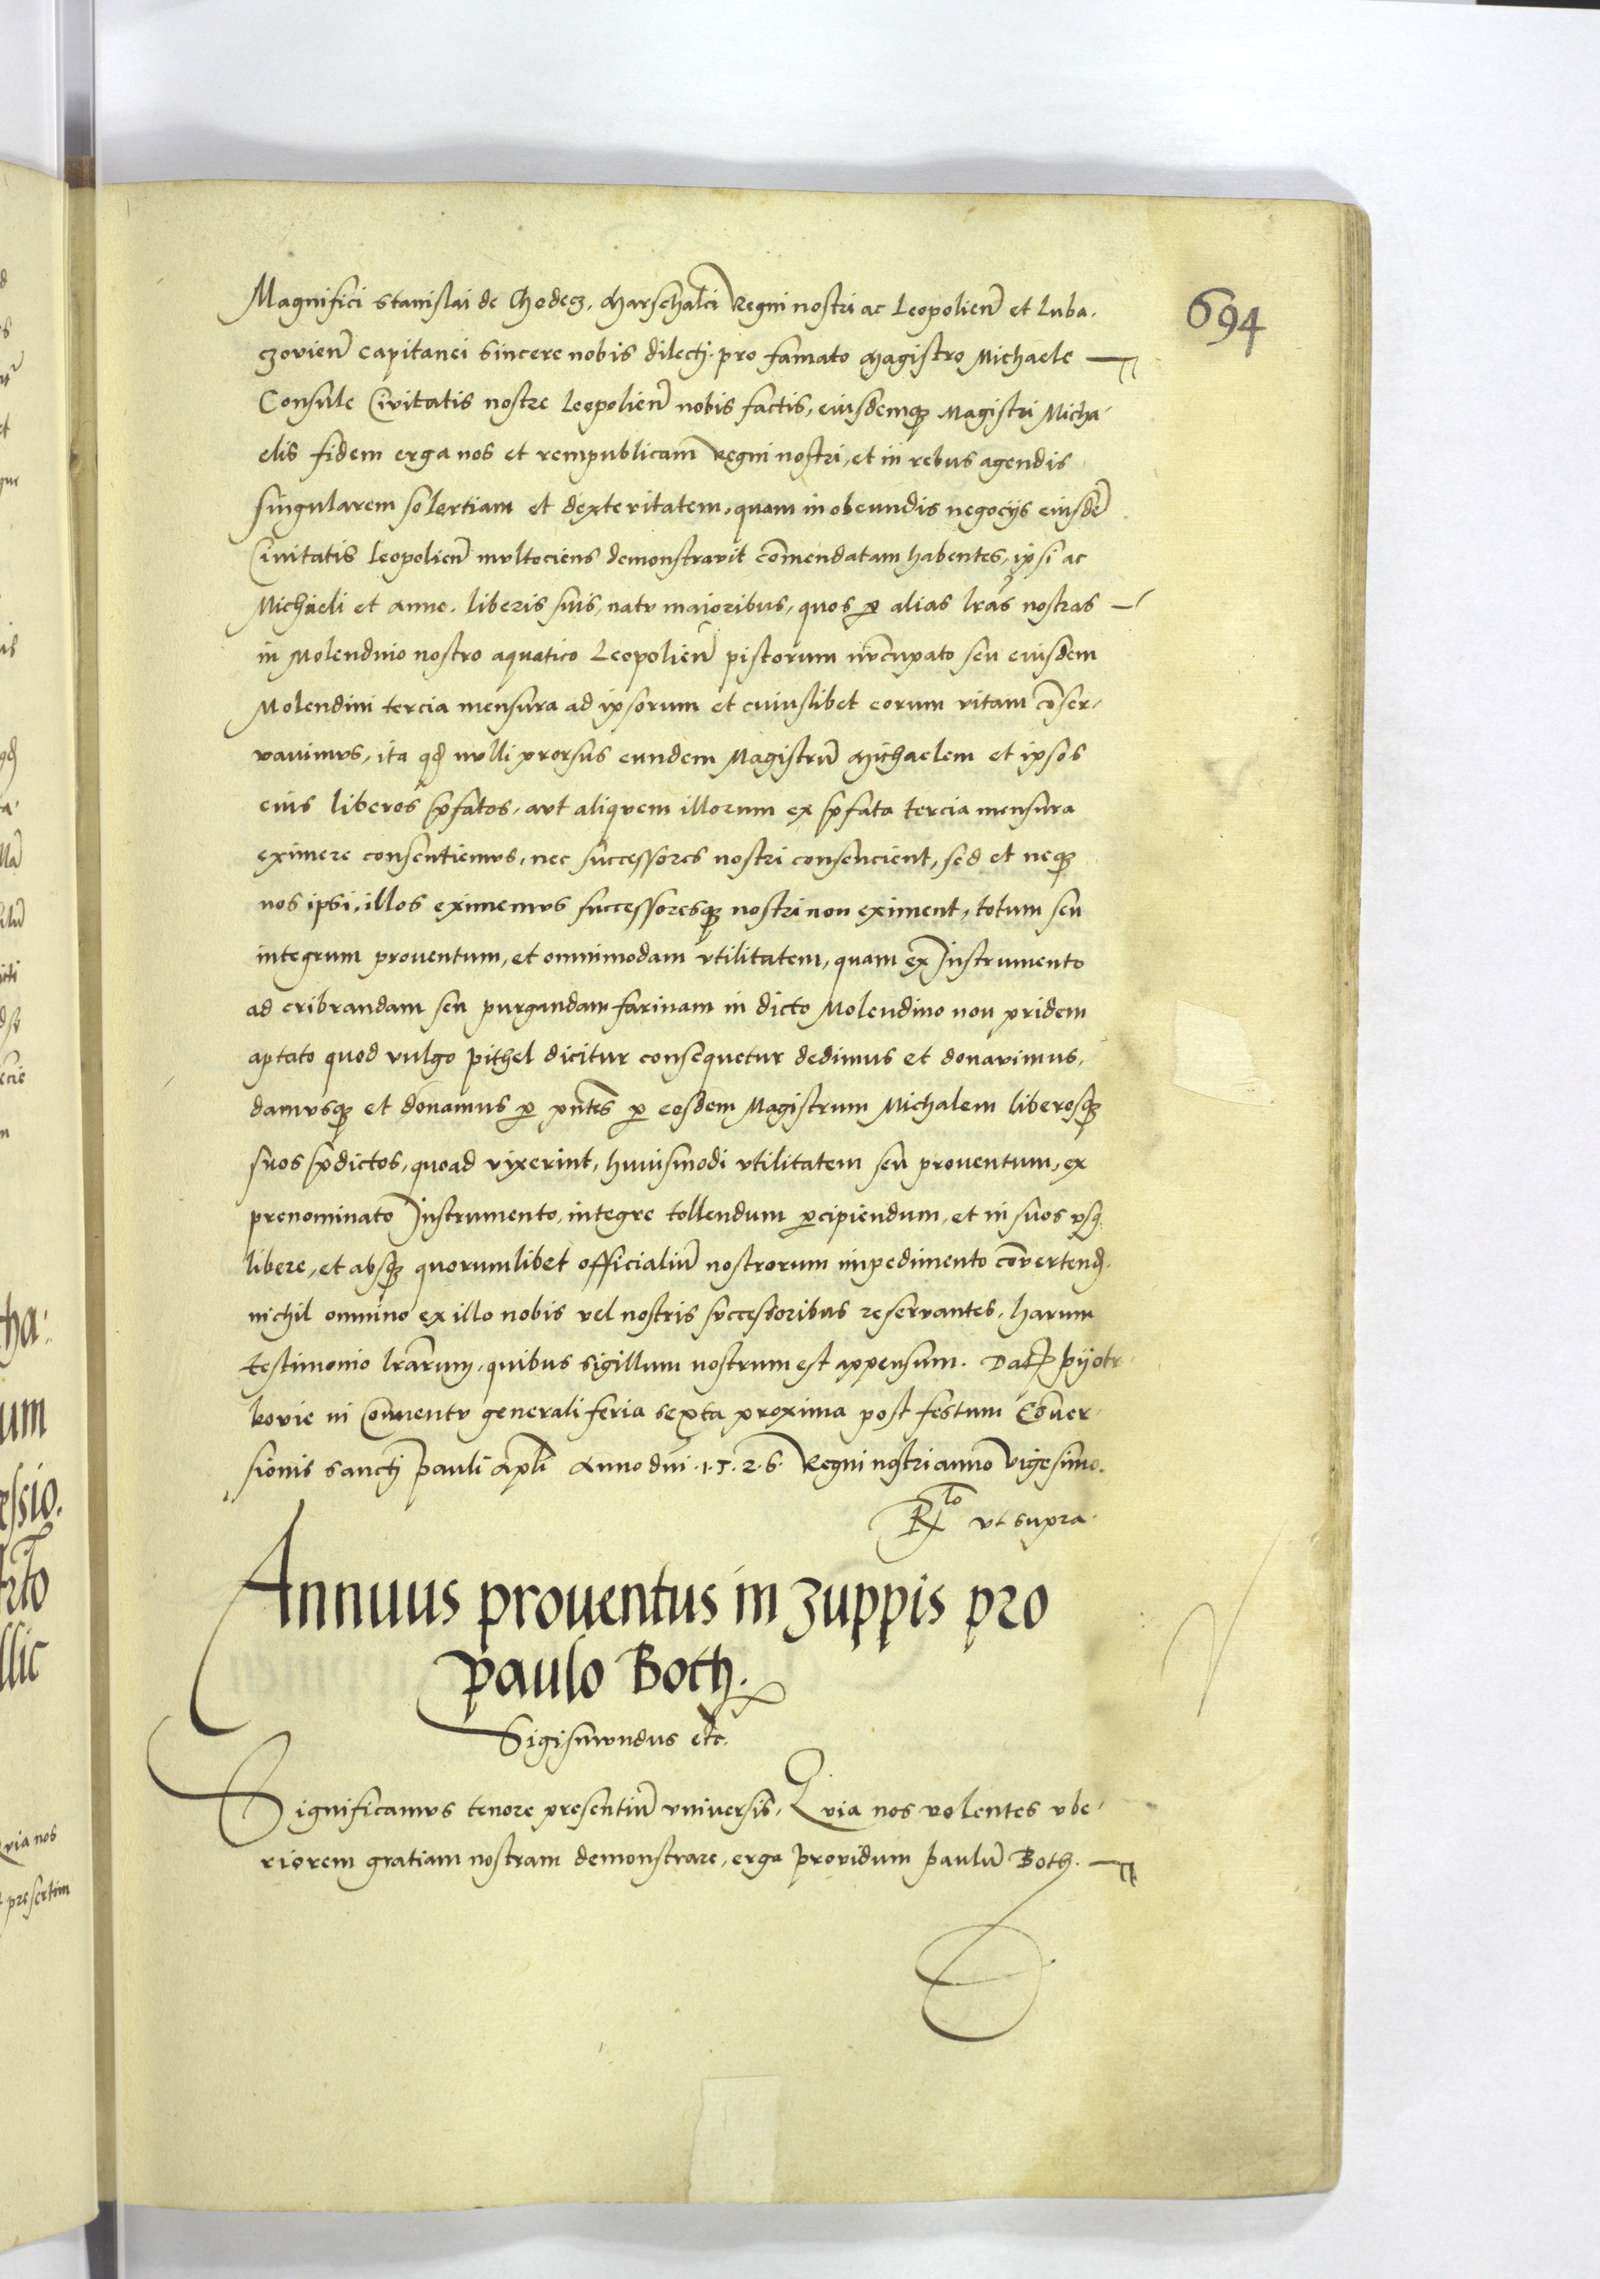 694
Magnifici Stanislai de Chodecz, Marschalci Regni nostri ac Leopolien̄ et Luba,
czovien̄ Capitanei sincere nobis dilecti, pro famato Magistro Michaele
Consule Civitatis nostre Leopolien̄ nobis factis, eiusdemqꝫ Magistri Micha
elis fidem erga nos et rempublicam Regni nostri, et in rebus agendis
singularem solertiam et dexteritatem, quam in obeundis negocijs eiusdē
Civitatis Leopolien̄ multociens demonstravit com̄endatam habentes, ipsi ac
Michaeli et Anne, liberis suis, natu maioribus, quos ꝑ alias lr̄as nostras
in Molendino nostro aquatico Leopolien̄ pistorum nūcupato seu eiusdem
Molendini tercia mensura ad ipsorum et cuiuslibet eorum vitam cōser,
vavimus, ita qđ nulli prorsus eundem Magistrū Michaelem et ipsos
eius liberos p̄fatos, aut aliquem illorum ex p̄fata tercia mensura
eximere consentiemus, nec successores nostri consencient, sed et neqꝫ
nos ipsi, illos eximemus successoresqꝫ nostri non eximent, totum seu
integrum proventum, et omnimodam utilitatem, quam ex Instrumento
ad cribrandam seu purgandam farinam in dicto Molendino non pridem
aptato quod vulgo pithel dicitur consequetur dedimus et donavimus,
damusqꝫ et donamus ꝑ pn̄tes ꝑ eosdem Magistrum Michalem liberosqꝫ
suos p̄dictos, quoad vixerint, huiusmodi utilitatem seu proventum, ex
prenominato Instrumento, integre tollendum ꝑcipiendum, et in suos usꝫ
libere, et absqꝫ quorumlibet officialiū nostrorum impedimento cōvertend.
nichil omnino ex illo nobis vel nostris successoribus reservantes, harum
testimonio lr̄arum, quibus sigillum nostrum est appensum. Dat Pijotr
kovie in Conventu generali feria sexta proxima post festum Cōver
sionis sancti Pauli Apl̄i Anno dn̄i .1.5.2.6. Regni nostri anno Vigesimo.
Rlo ut supra.
Annuus proventus in zuppis pro
Paulo Both.
Sigismundus etc.
Significamus tenore presentiū universis, Quia nos volentes ube,
riorem gratiam nostram demonstrare, erga providum Paulū Both.